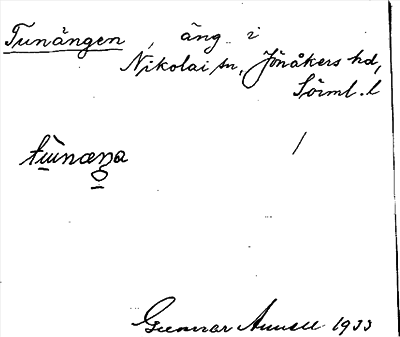 Tunängen, äng i
Nikolai sn, Jönåkers hd,
Sörml. l
tùnæŋa /
Gunnar
1933